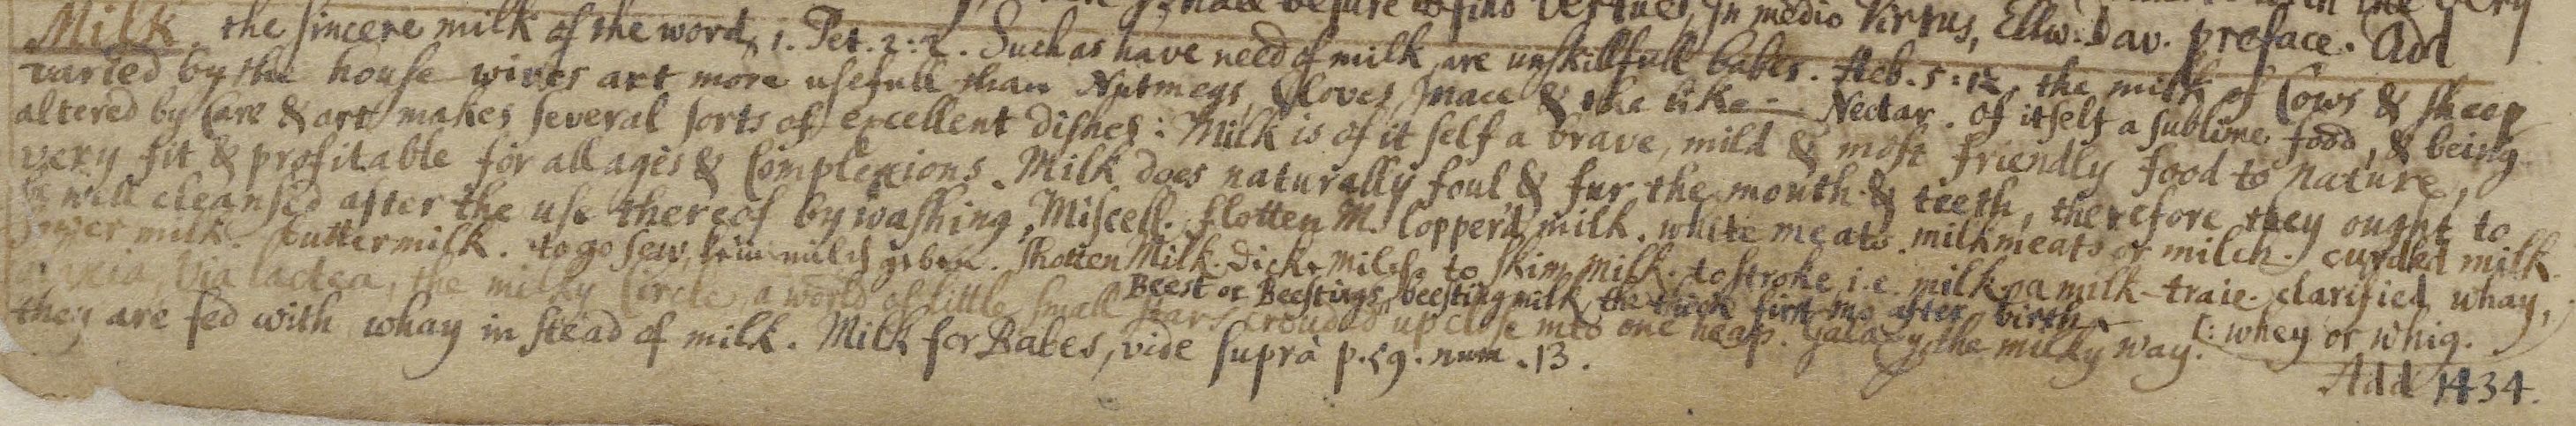 shall be sure to find Vertues, In medio Virtus, Ellw. Dav. preface. Add
Milk, the sincere milk of the word, 1. Pet. 2:2. Such as have need of milk, are unskillfull babes. Heb. 5:12, the milk of Cows & sheep
varied by the house wives art more usefull than Nutmegs, Cloves, mace & the like. Nectar. of itself a sublime food, & being
altered by Care & art makes several sorts of excellent dishes: Milk is of it self a brave, mild & most friendly food to nature,
very fit & profitable for all ages & Complexions. Milk does naturally foul & fur the mouth & teeth, therefore they ought to
be well cleansed after the use thereof by washing, Miscell. flotten M. Copper'd milk. white meats. milkmeats or milch. curdled milk.
sower milk. buttermilk. to go sew, kein milch geben. Shotten Milk. Dicke Milch. to skim milk. to stroke i.e. milk. a milk-traie. clarified whay,
Beest or Beestings, beesting milk, the thick first ms after birth. [: whey or whig.
galaxia, Via lactea, the milky Circle, a world of little small stars crouded up close into one heap. Galaxy, the milky way.
they are fed with whay in stead of milk. Milk for Babes, vide suprà p. 59. num. 13.
Add 1434.